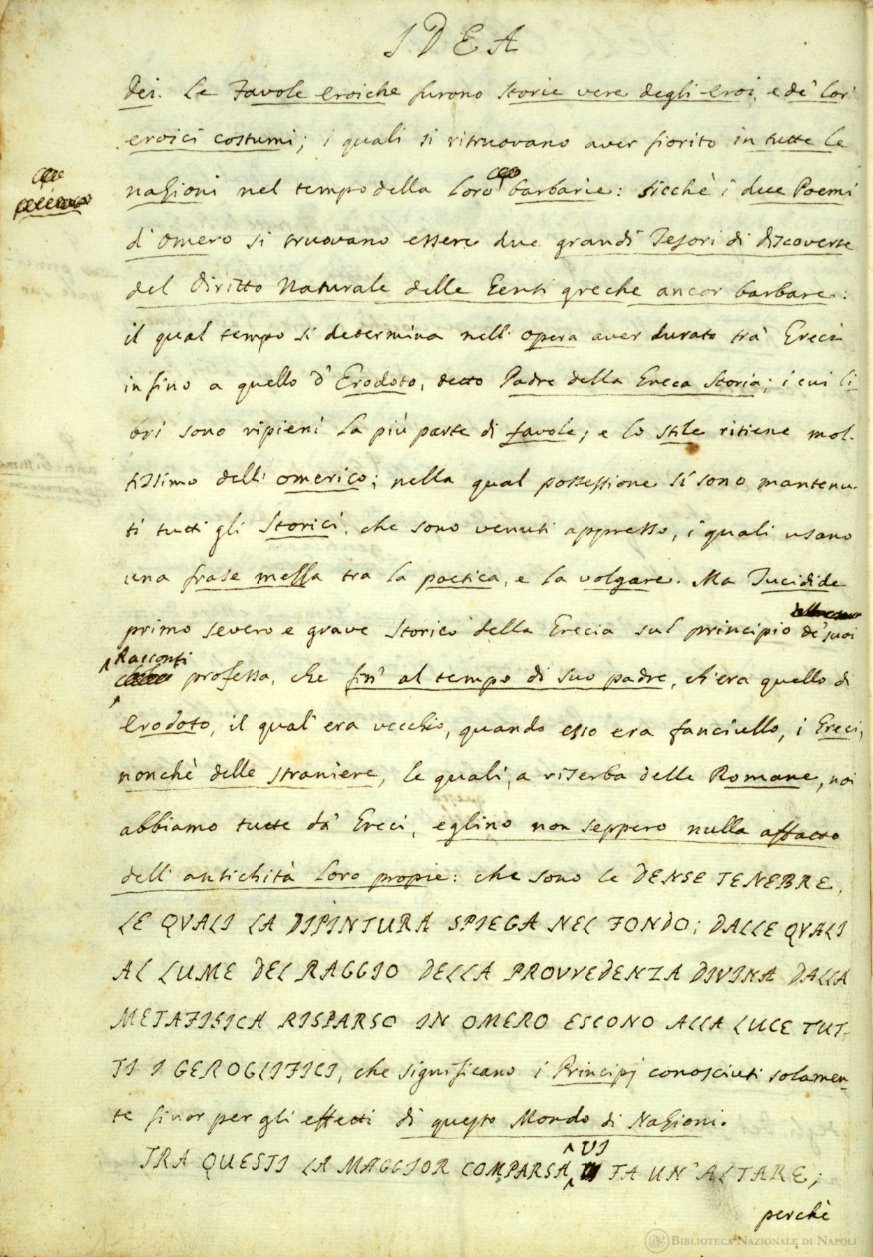 IDEA
Dei. Le Favole eroiche furono Storie vere degli eroi, e de' lor'
eroici costumi; i quali si ritruovano aver fiorito in tutte le
nazioni nel tempo della loro barbarie: sicchè i due Poemi
d'Omero si truovano essere due grandi Tesori di discoverte
del Diritto Naturale delle Genti greche ancor barbare:
il qual tempo si determina nell'opera aver durato tra' Greci
infino a quello d'Erodoto, detto Padre della Greca Storia; i cui li-
bri sono ripieni la più parte di favole; e lo stile ritiene mol-
tissimo dell'omerico; nella qual possessione si sono mantenu-
ti tutti gli Storici, che sono venuti appresso, i quali usano
una frase mezza tra la poetica, e la volgare. Ma Tucidide
primo severo e grave Storico della Grecia sul principio de' suoi
Racconti professa, che fin' al tempo di suo padre, ch'era quello di
Erodoto, il qual' era vecchio, quando esso era fanciullo, i Greci,
nonchè delle straniere, le quali, a riserba delle Romane, noi
abbiamo tutte da' Greci, eglino non seppero nulla affatto
dell'antichità loro propie: che sono le DENSE TENEBRE,
LE QVALI LA DIPINTURA SPIEGA NEL FONDO; DALLE QVALI
AL LUME DEL RAGGIO DELLA PROVVEDENZA DIVINA DALLA
METAFISICA RISPARSO IN OMERO ESCONO ALLA LUCE TUT-
TI I GEROGLIFICI, che significano i Principj conosciuti solamen-
te finor per gli effetti di questo Mondo di Nazioni.
TRA QUESTI LA MAGGIOR COMPARSA VI FA UN'ALTARE;
perchè
BIBLIOTECA NAZIONALE DI NAPOLI